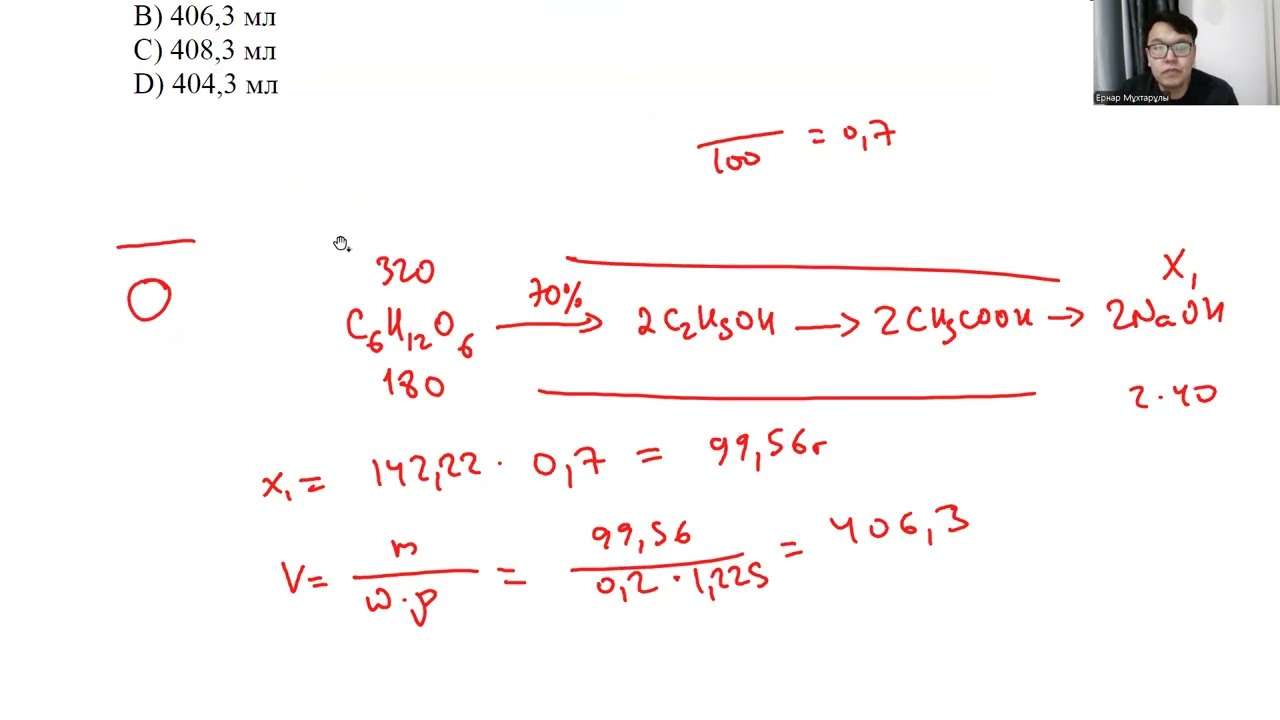 B) 406,3 мл
C) 408,3 мл
D) 404,3 мл
Ернар Мұхтарұлы
100 = 0,7
320 X₁
C₆H₁₂O₆ 70% → 2C₂H₅OH → 2CH₃COOH → 2NaOH
180 2·40
x₁ = 142,22 · 0,7 = 99,56г
V = m / ω·ρ = 99,56 / 0,2 · 1,225 = 406,3